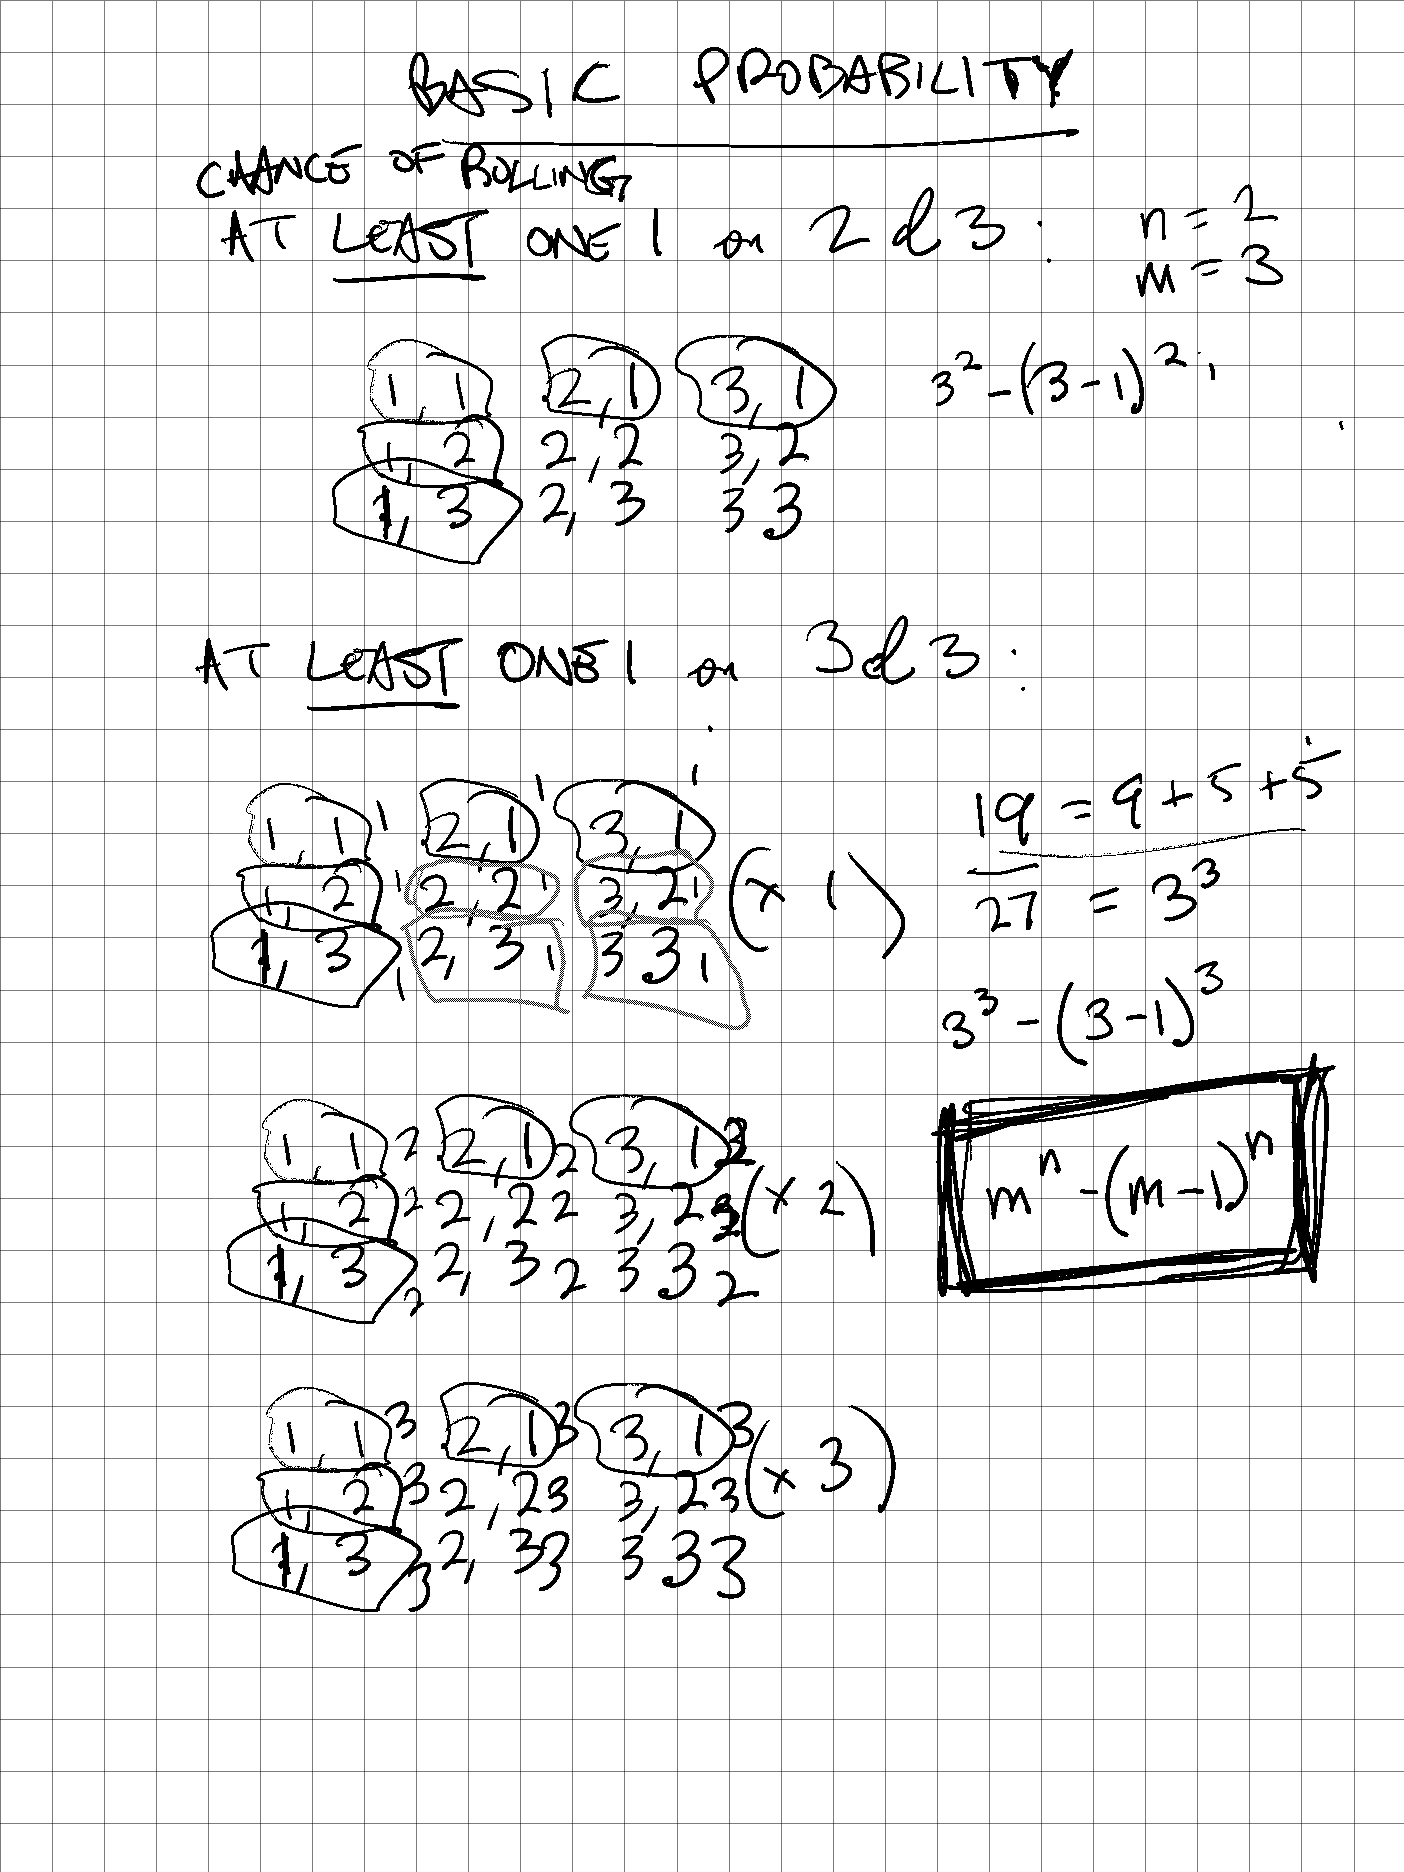 BASIC PROBABILITY
CHANCE OF ROLLING
AT LEAST ONE 1 on 2d3:
n = 2
m = 3
1, 1 2, 1 3, 1
1, 2 2, 2 3, 2
1, 3 2, 3 3 3
3² - (3-1)²
AT LEAST ONE 1 on 3d3:
1, 1 1 2, 1 1 3, 1 1
1, 2 1 2, 2 1 3, 2 1
1, 3 1 2, 3 1 3 3 1
(x 1)
19 = 9 + 5 + 5
27 = 3³
3³ - (3-1)³
mⁿ - (m-1)ⁿ
1, 1 2 2, 1 2 3, 1 2
1, 2 2 2, 2 2 3, 2 2
1, 3 2 2, 3 2 3 3 2
(x 2)
1, 1 3 2, 1 3 3, 1 3
1, 2 3 2, 2 3 3, 2 3
1, 3 3 2, 3 3 3 3 3
(x 3)